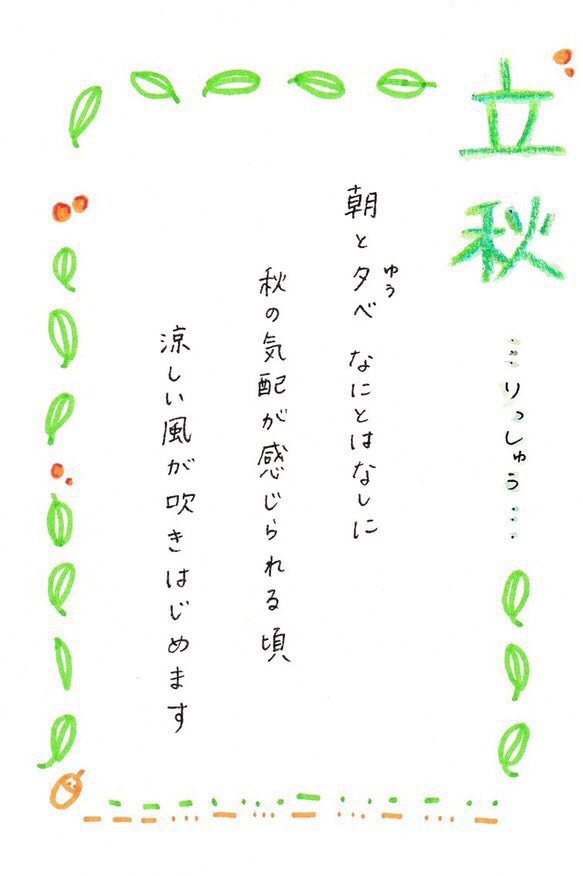 立秋
…りっしゅう…
朝と夕べ なにとはなしに
ゆう
秋の気配が感じられる頃
涼しい風が吹きはじめます